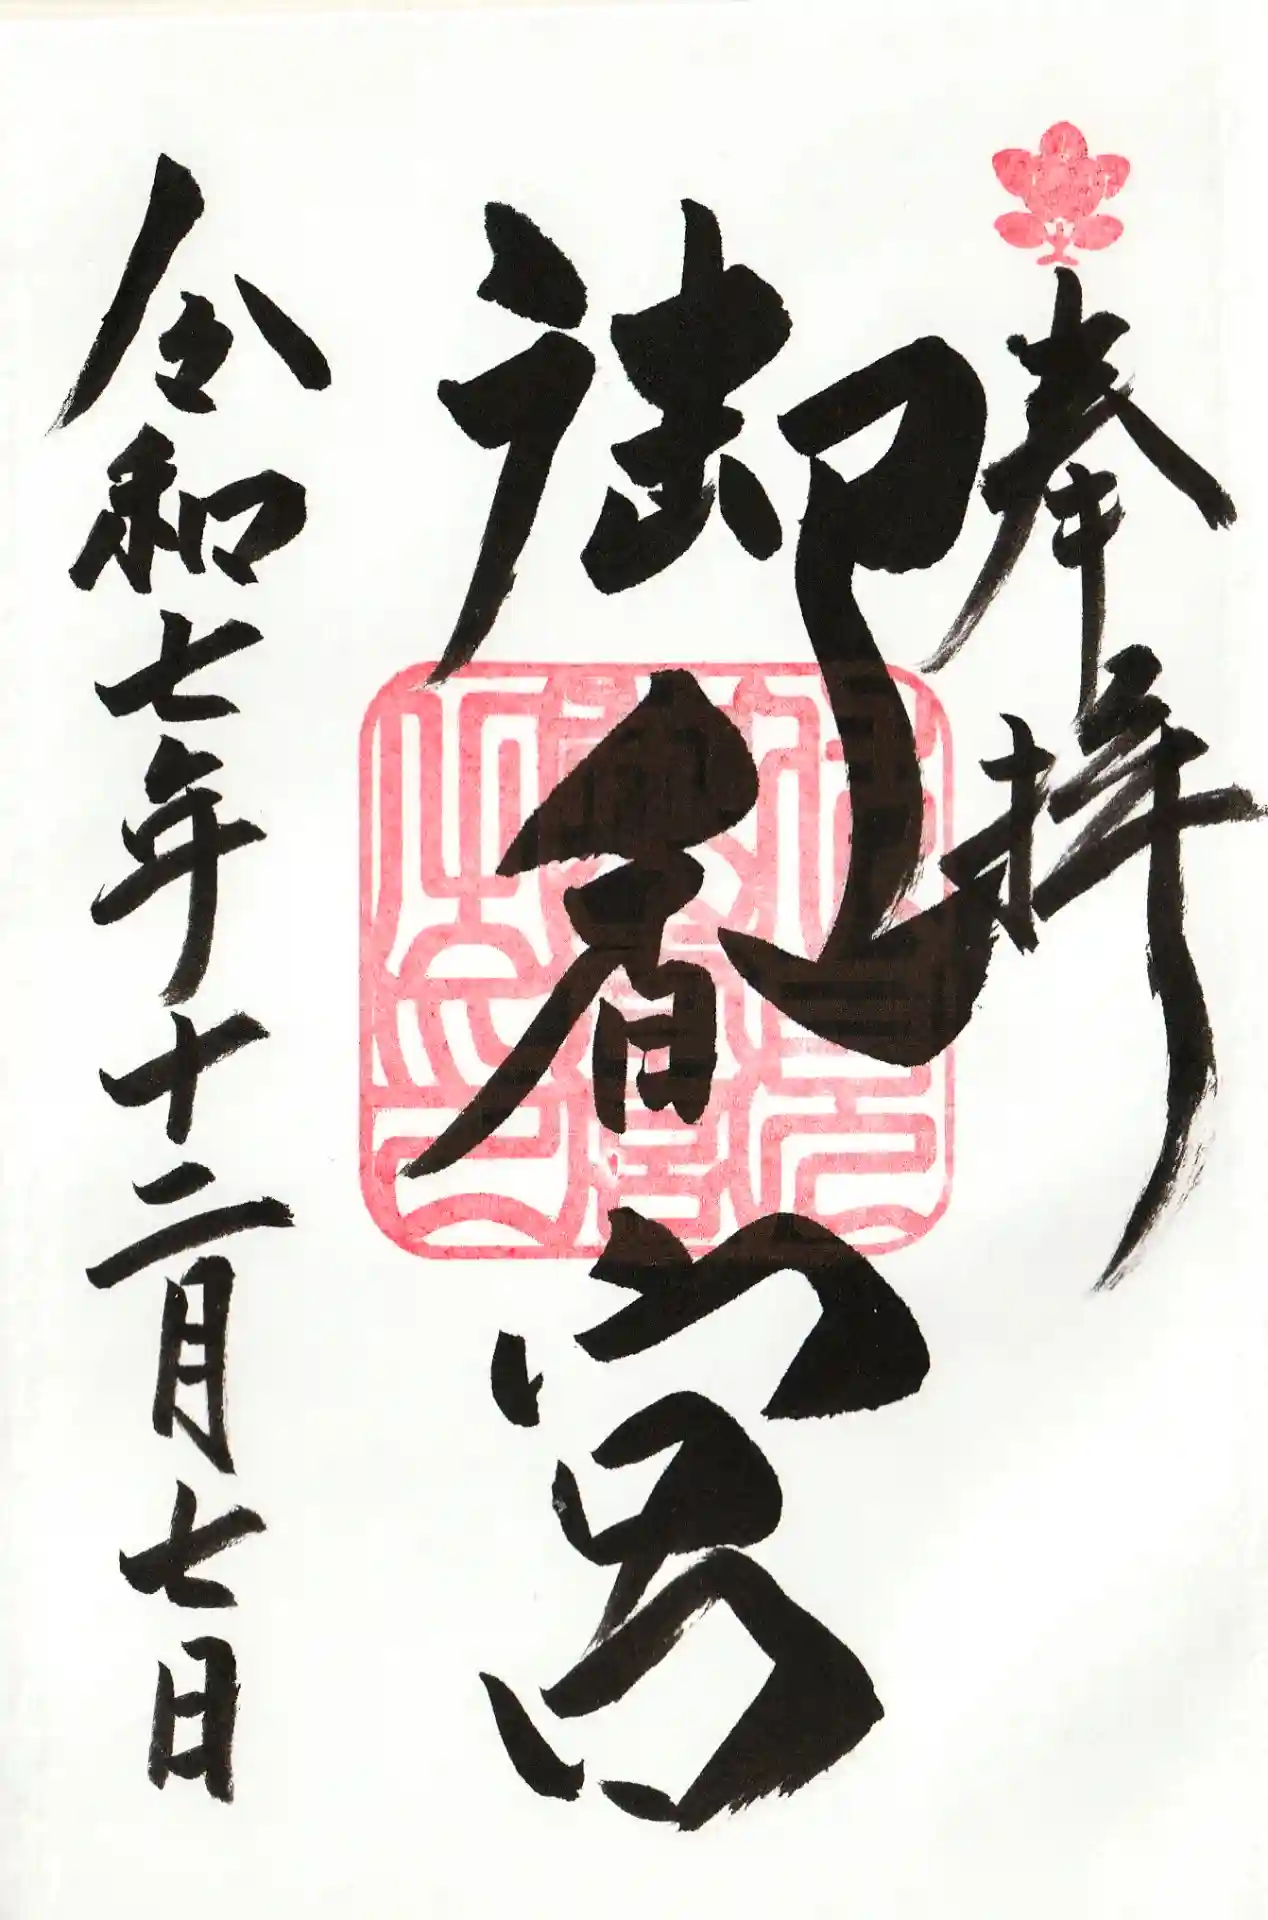 奉拝
御香宮
令和七年十二月七日